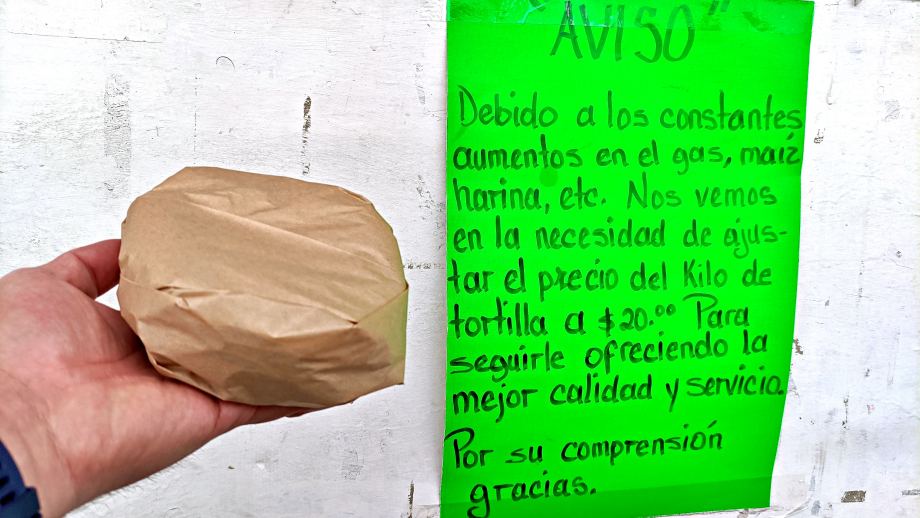 "AVISO"
Debido a los constantes
aumentos en el gas, maíz
harina, etc. Nos vemos
en la necesidad de ajus-
tar el precio del Kilo de
tortilla a $20.00 Para
seguirle ofreciendo la
mejor calidad y servicio.
Por su comprensión
gracias.